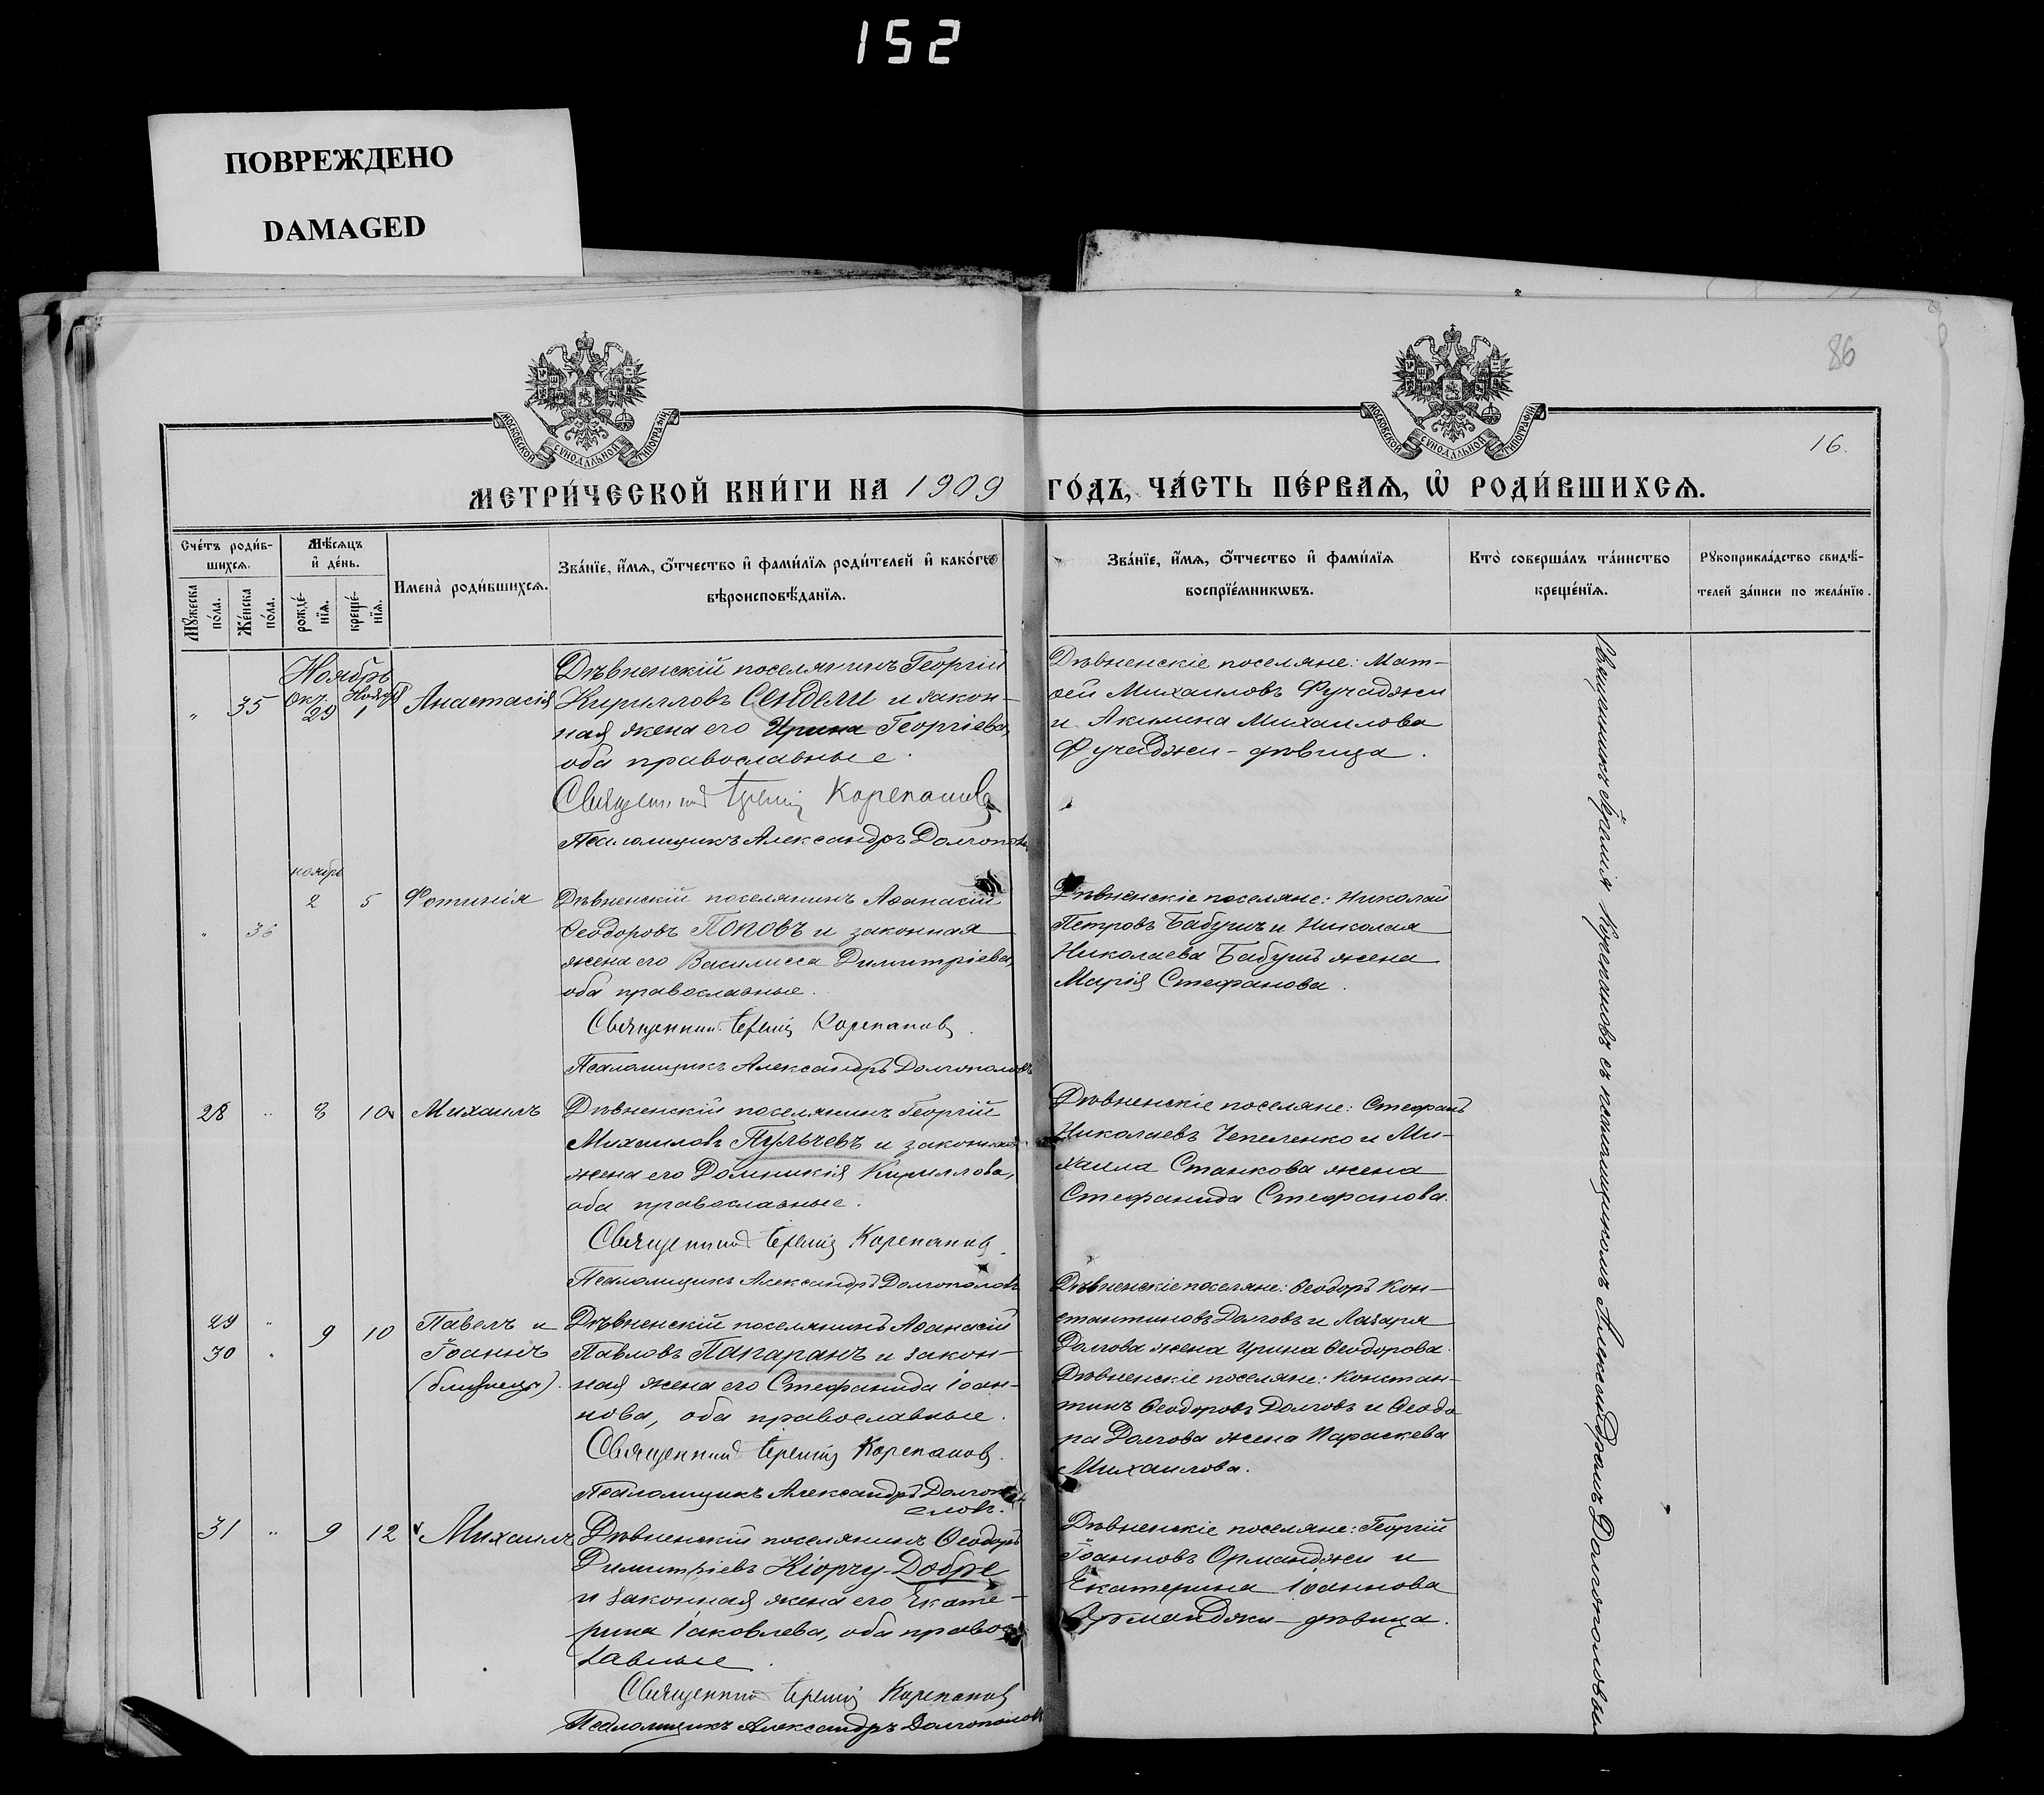 152
ПОВРЕЖДЕНО
DAMAGED
86
МОСКОВСКОЙ СѴНОДАЛЬНОЙ ТИПОГРАФІИ
МОСКОВСКОЙ СѴНОДАЛЬНОЙ ТИПОГРАФІИ
16.
МЕТРИ́ЧЕСКОЙ КНИ́ГИ НА 1909 ГО́ДЪ, ЧА́СТЬ ПЕ́РВАѦ, Ѡ҆ РОДИ́ВШИХСѦ.
Сче́тъ роди́в-
шихсѧ.
Мꙋ́жеска по́ла.
Же́нска по́ла.
Мѣ́сѧцъ
и҆ де́нь.
рожде́-
нїѧ.
креще́-
нїѧ.
Имена̀ роди́вшихсѧ.
Зва́нїе, и҆́мѧ, ѻ҆́тчество и҆ фами́лїѧ роди́телей и҆ како́гѡ
вѣроисповѣ́данїѧ.
Зва́нїе, и҆́мѧ, ѻ҆́тчество и҆ фами́лїѧ
воспрїе́мникѡвъ.
Кто̀ соверша́лъ та́инство
креще́нїѧ.
Рꙋкоприкла́дство свидѣ́-
телей за́писи по жела́нїю.
Ноябрь
" 35 Окт. 29 Ноября 1 Анастасія
Дѣвненскій поселянинъ Георгій
Кирилловъ Сендели и закон-
ная жена его Ирина Георгіева,
оба православные.
Священникъ Іеремія Корепановъ
Псаломщикъ Александръ Долгополовъ
Дѣвненскіе поселяне: Мат-
ѳей Михаиловъ Фучеджи
и Акилина Михаилова
Фучеджи - дѣвица.
ноябрь
" 36 2 5 Фотинія
Дѣвненскій поселянинъ Аѳанасій
Ѳеодоровъ Поповъ и законная
жена его Василисса Димитріева,
оба православные.
Священникъ Іеремія Корепановъ.
Псаломщикъ Александръ Долгополовъ
Дѣвненскіе поселяне: Николай
Петровъ Бабушъ и Николая
Николаева Бабушъ жена
Марія Стефанова.
28 " 8 10 Михаилъ
Дѣвненскій поселянинъ Георгій
Михаиловъ Пульчевъ и законная
жена его Домникія Кириллова,
оба православные.
Священникъ Іеремія Корепановъ.
Псаломщикъ Александръ Долгополовъ
Дѣвненскіе поселяне: Стефанъ
Николаевъ Чепеленко и Ми-
хаила Станкова жена
Стефанида Стефанова.
29 "
30 " 9 10 Павелъ и
Іоаннъ
(близнецы).
Дѣвненскій поселянинъ Аѳанасій
Павловъ Папаранъ и закон-
ная жена его Стефанида Іоан-
нова, оба православные.
Священникъ Іеремія Корепановъ.
Псаломщикъ Александръ Долгоп
оловъ.
Дѣвненскіе поселяне: Ѳеодоръ Кон-
стантиновъ Долговъ и Лазаря
Долгова жена Ирина Ѳеодорова.
Дѣвненскіе поселяне: Констан-
тинъ Ѳеодоровъ Долговъ и Ѳеодо
ра Долгова жена Параскева
Михаилова.
31 " 9 12 Михаилъ
Дѣвненскій поселянинъ Ѳеодоръ
Димитріевъ Кіорчу-Добре
и законная жена его Екате-
рина Іаковлева, оба правос
лавные.
Священникъ Іеремія Корепановъ
Псаломщикъ Александръ Долгополовъ
Дѣвненскіе поселяне: Георгій
Іоанновъ Орманджи и
Екатерина Іоаннова
Орманджи - дѣвица.
Священникъ Іеремія Корепановъ съ псаломщикомъ Александромъ Долгополовымъ